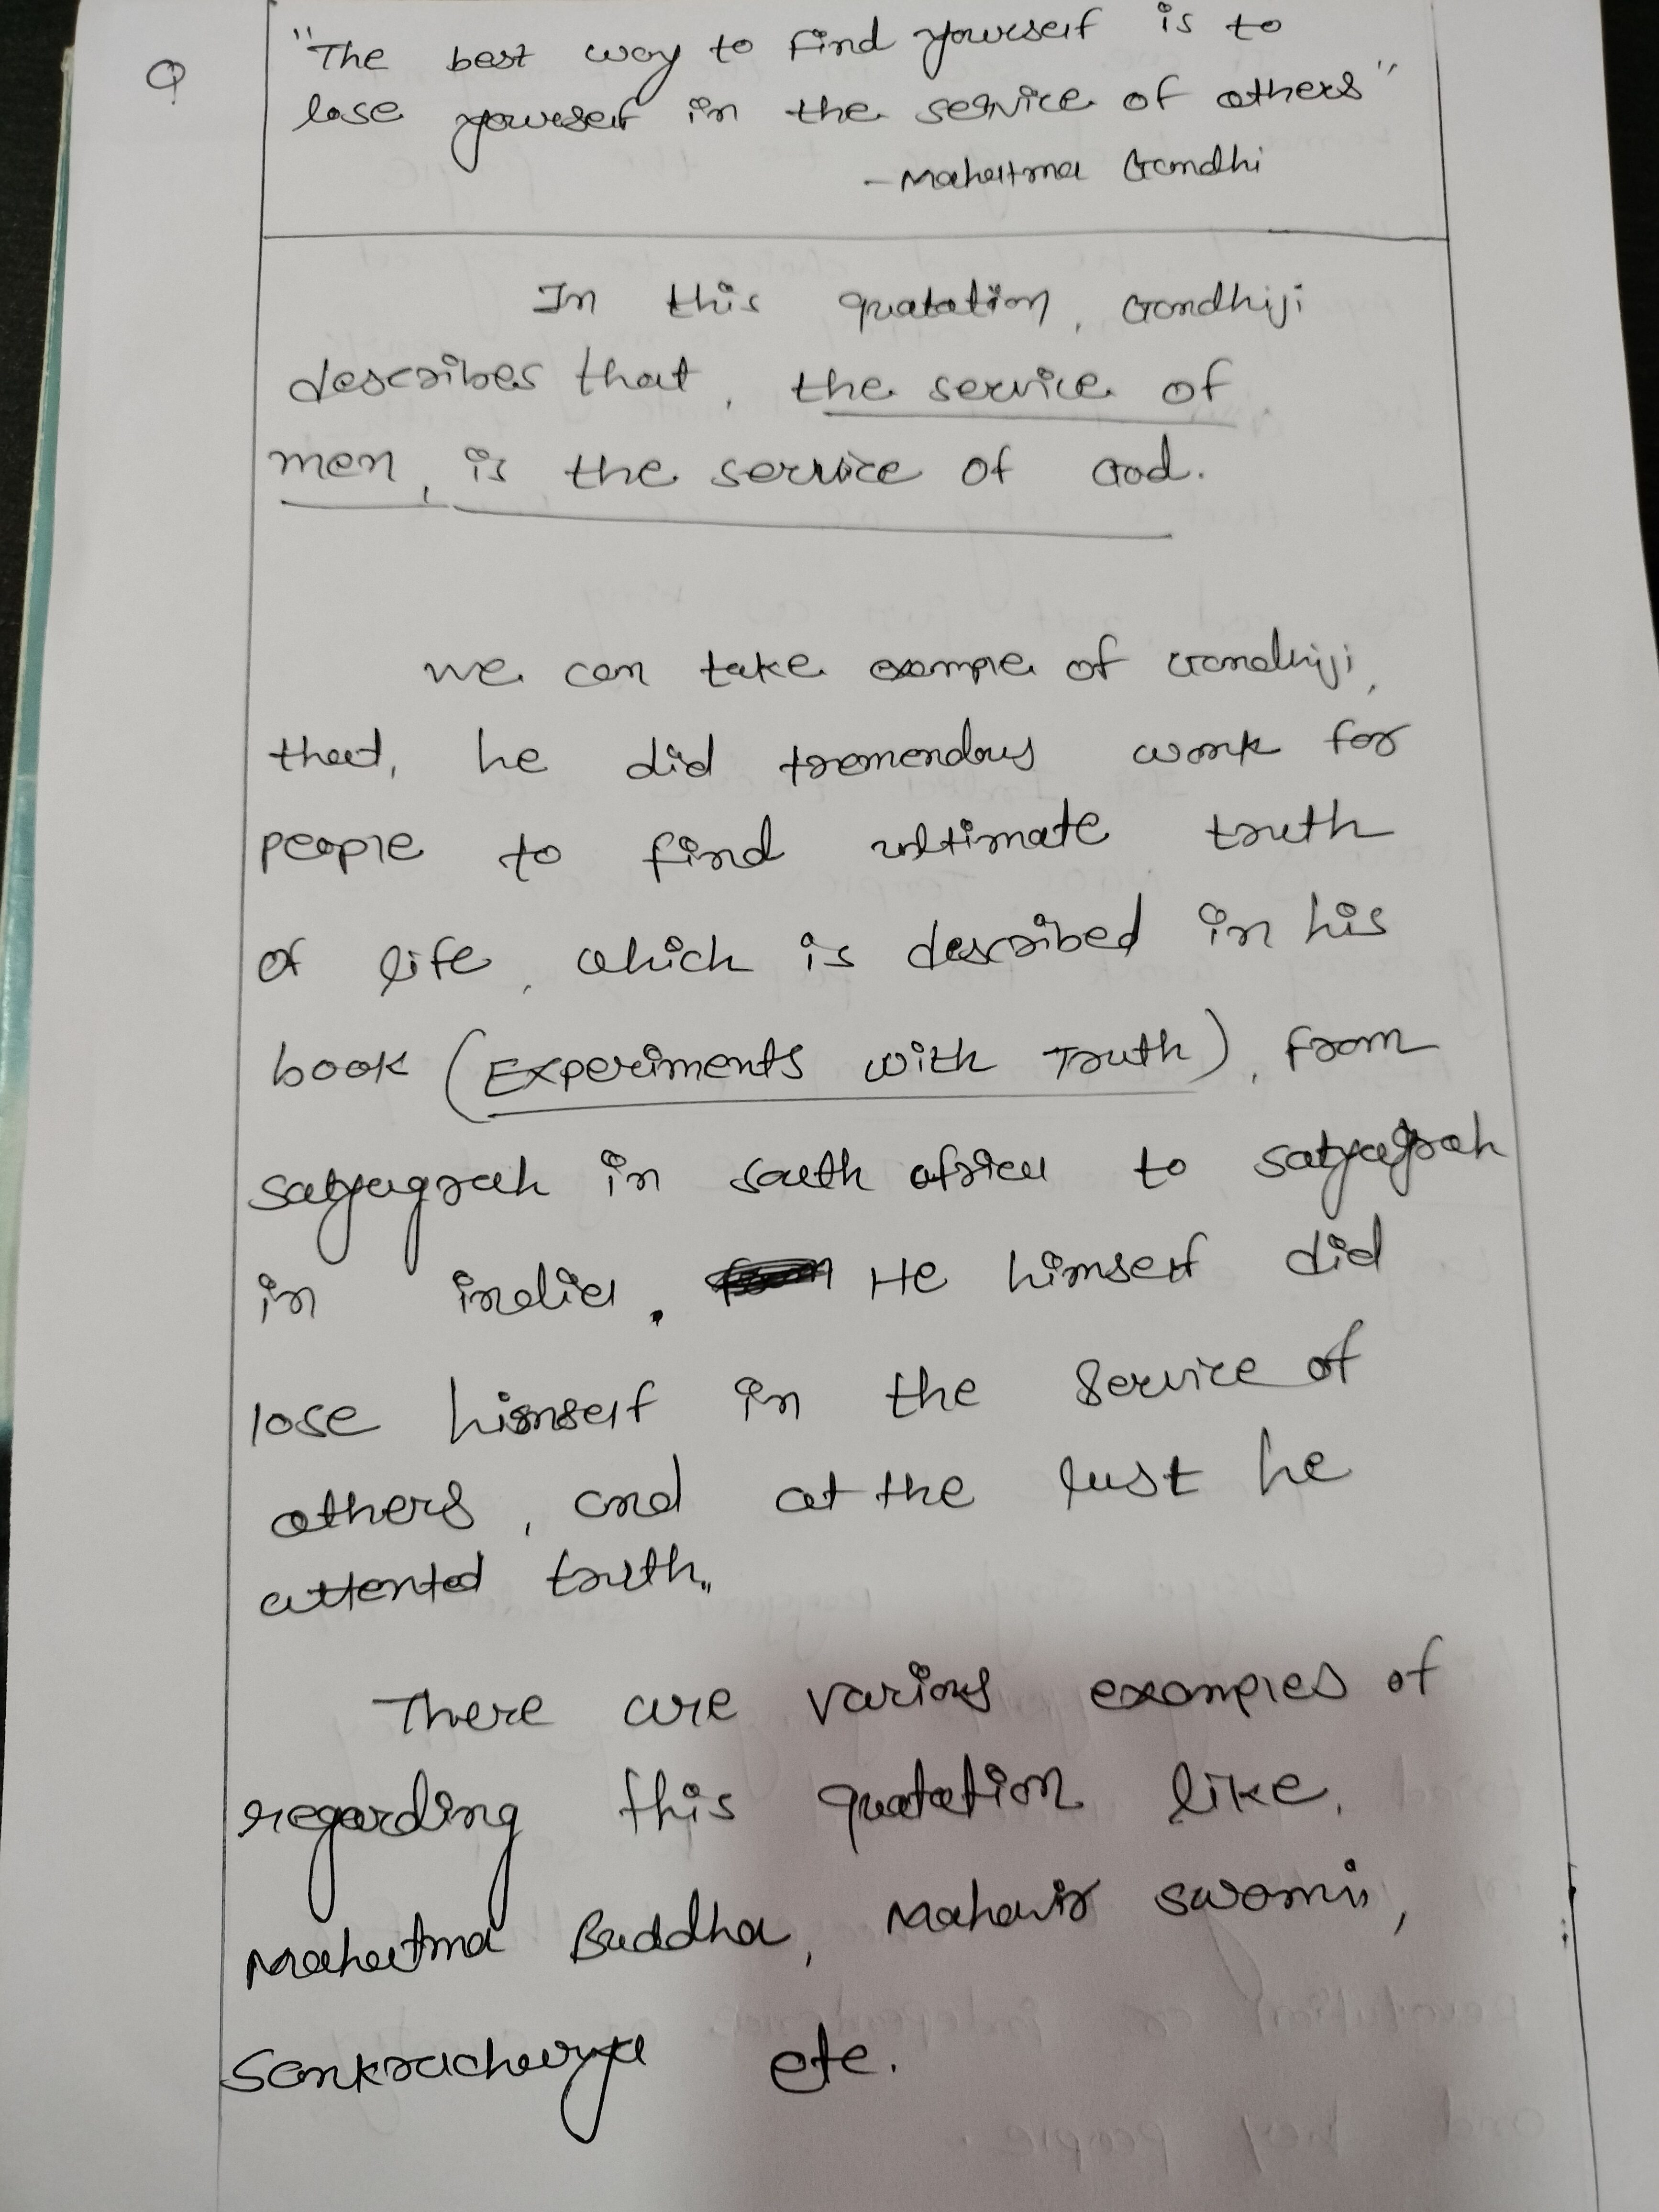 Q
"The best way to find yourself is to
lose yourself in the service of others"
- Mahatma Gandhi
In this quatation, Gandhiji
describes that, the service of
men, is the service of God.
we can take example of Gandhiji,
that, he did tremendous work for
people to find ultimate truth
of life, which is described in his
book (Experiments with Truth), from
satyagrah in south africa to satyagrah
in india. He himself did
lose himself in the service of
others, and at the last he
attented truth.
There are various examples of
regarding this quatation like,
Mahatma Buddha, Mahavir swami,
Sankracharya etc.